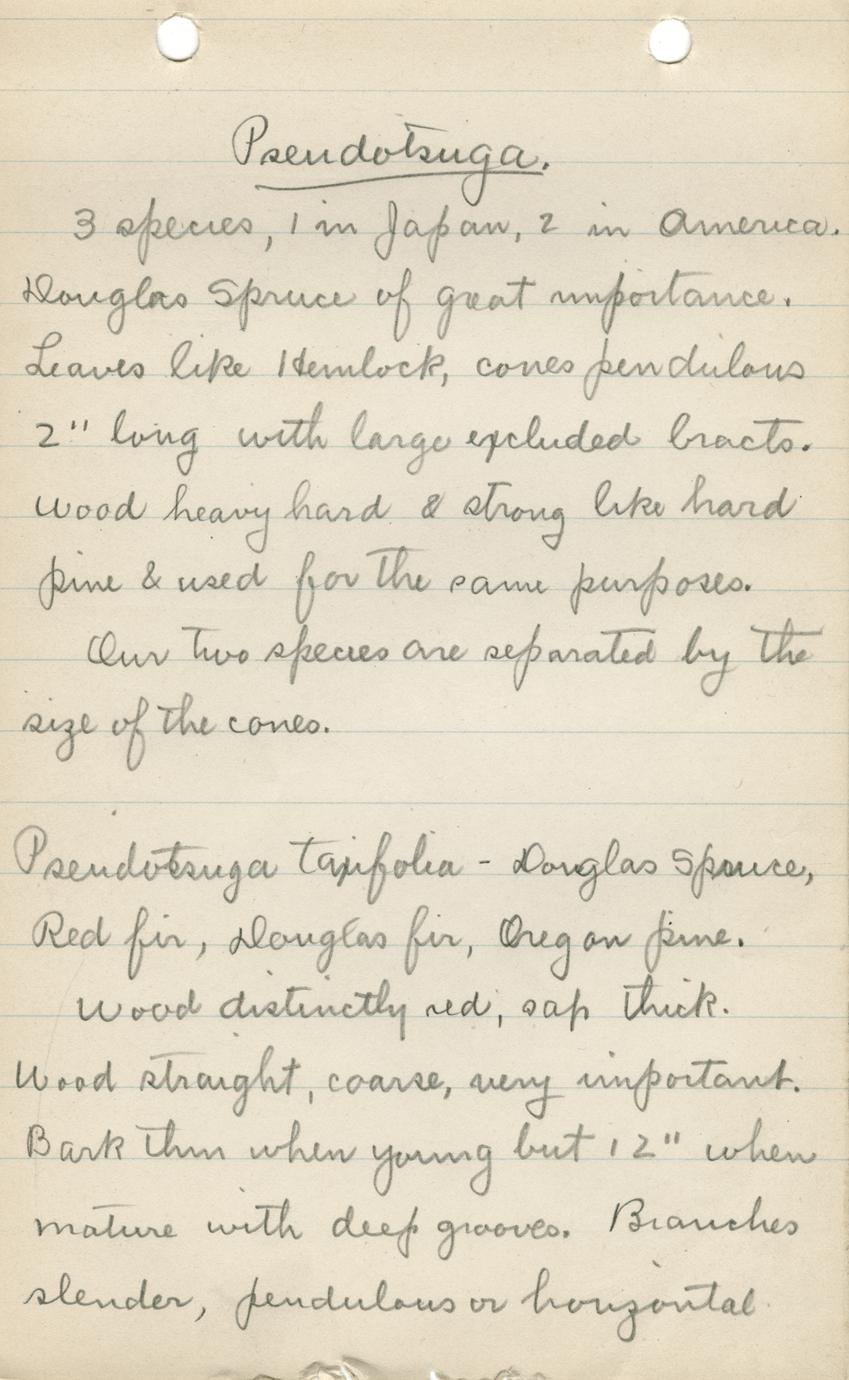 Pseudotsuga.
3 species, 1 in Japan, 2 in America.
Douglas Spruce of great importance.
Leaves like Hemlock, cones pendulous
2" long with large excluded bracts.
Wood heavy hard & strong like hard
pine & used for the same purposes.
Our two species are separated by the
size of the cones.
Pseudotsuga taxifolia - Douglas Spruce,
Red fir, Douglas fir, Oregon pine.
Wood distinctly red, sap thick.
Wood straight, coarse, very important.
Bark thin when young but 12" when
mature with deep grooves. Branches
slender, pendulous or horizontal